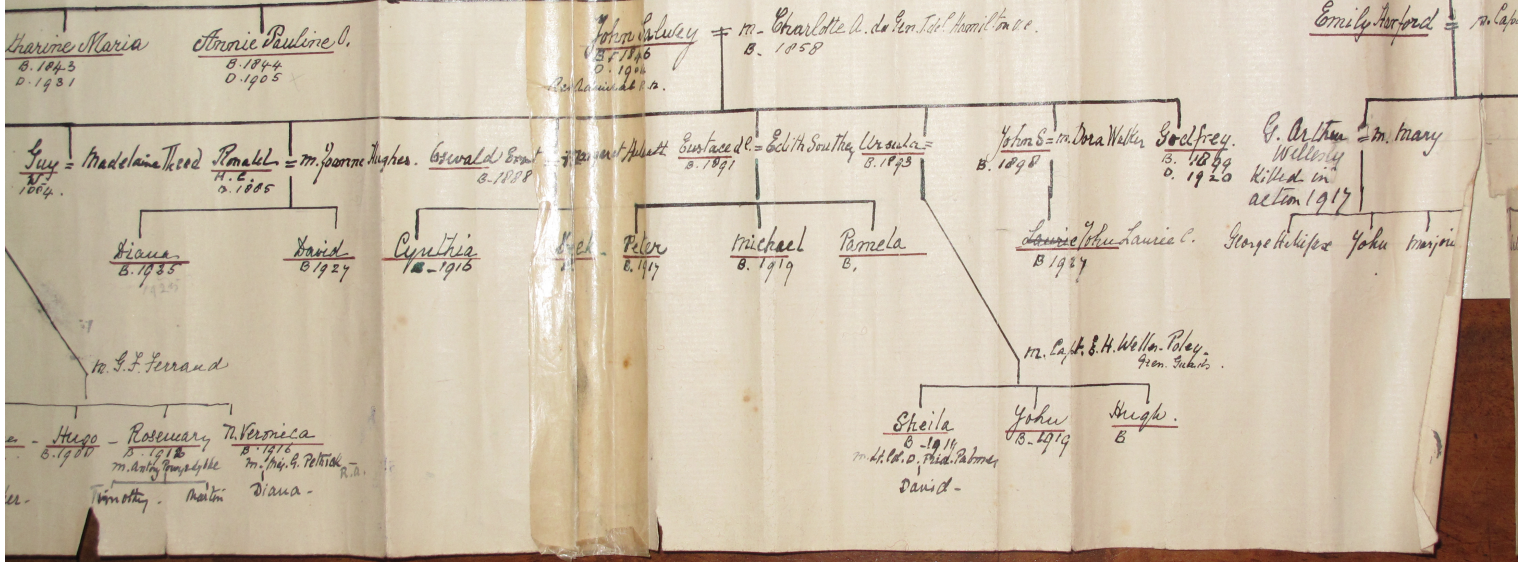 tharine Maria
B. 1843
D. 1931
Annie Pauline O.
B. 1844
D. 1905
John Salwey = m. Charlotte A. da Gen.
B. 1846
D. 19
B. 1858
Emily Harford =
Guy = Madelaine Theed
Ronald = m. Yoanne Hughes.
H. C.
B. 1885
Oswald Ernest = Margaret
B. 1888
Eustace de C. = Edith Southey
B. 1891
Ursula =
B. 1893
John S = m. Dora Walker
B. 1898
Godfrey.
B. 1899
D. 1920
G. Arthur = m. Mary
Wellesly
Killed in
action 1917
Diana
B. 1935
David
B 1927
Cynthia
B - 1916
Peter
B. 1917
Michael
B. 1919
Pamela
B.
Laurie John Laurie C.
B 1927
George Halifax
John
Marjorie
m. G. F. Ferrand
m. Capt. E. H. Weller-Poley.
Gren. Guards.
Hugo -
B. 190
Rosemary
B. 1912
m. Antony
N. Veronica
B - 1916
m. Maj. G. Petrick
R.A.
Timothy -
Martin
Diana -
Sheila
B - 1914
m. Lt. Col. D. Palmer
David -
John
B - 1919
Hugh.
B